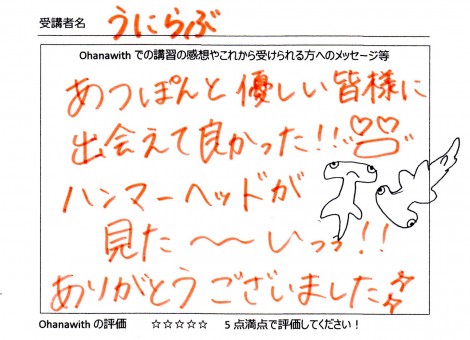 受講者名 うにらぶ
Ohanawith での講習の感想やこれから受けられる方へのメッセージ等
あつぽんと優しい皆様に
出会えて良かった!!
ハンマーヘッドが
見た〜〜いっっ!!
ありがとうございました☆☆
Ohanawith の評価 ☆☆☆☆☆ 5点満点で評価してください!